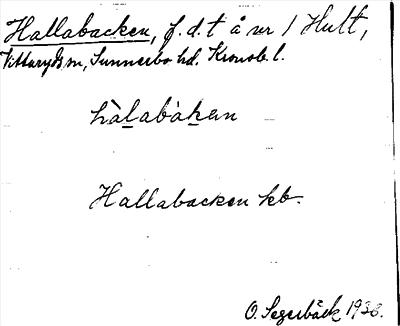 Hallabacken, f.d.t å nr 1 Hult,
Vittaryds sn, Sunnerbo hd. Kronob. l.
hàlabàkan
Hallabacken kb.
O. Segerbäck 1938.